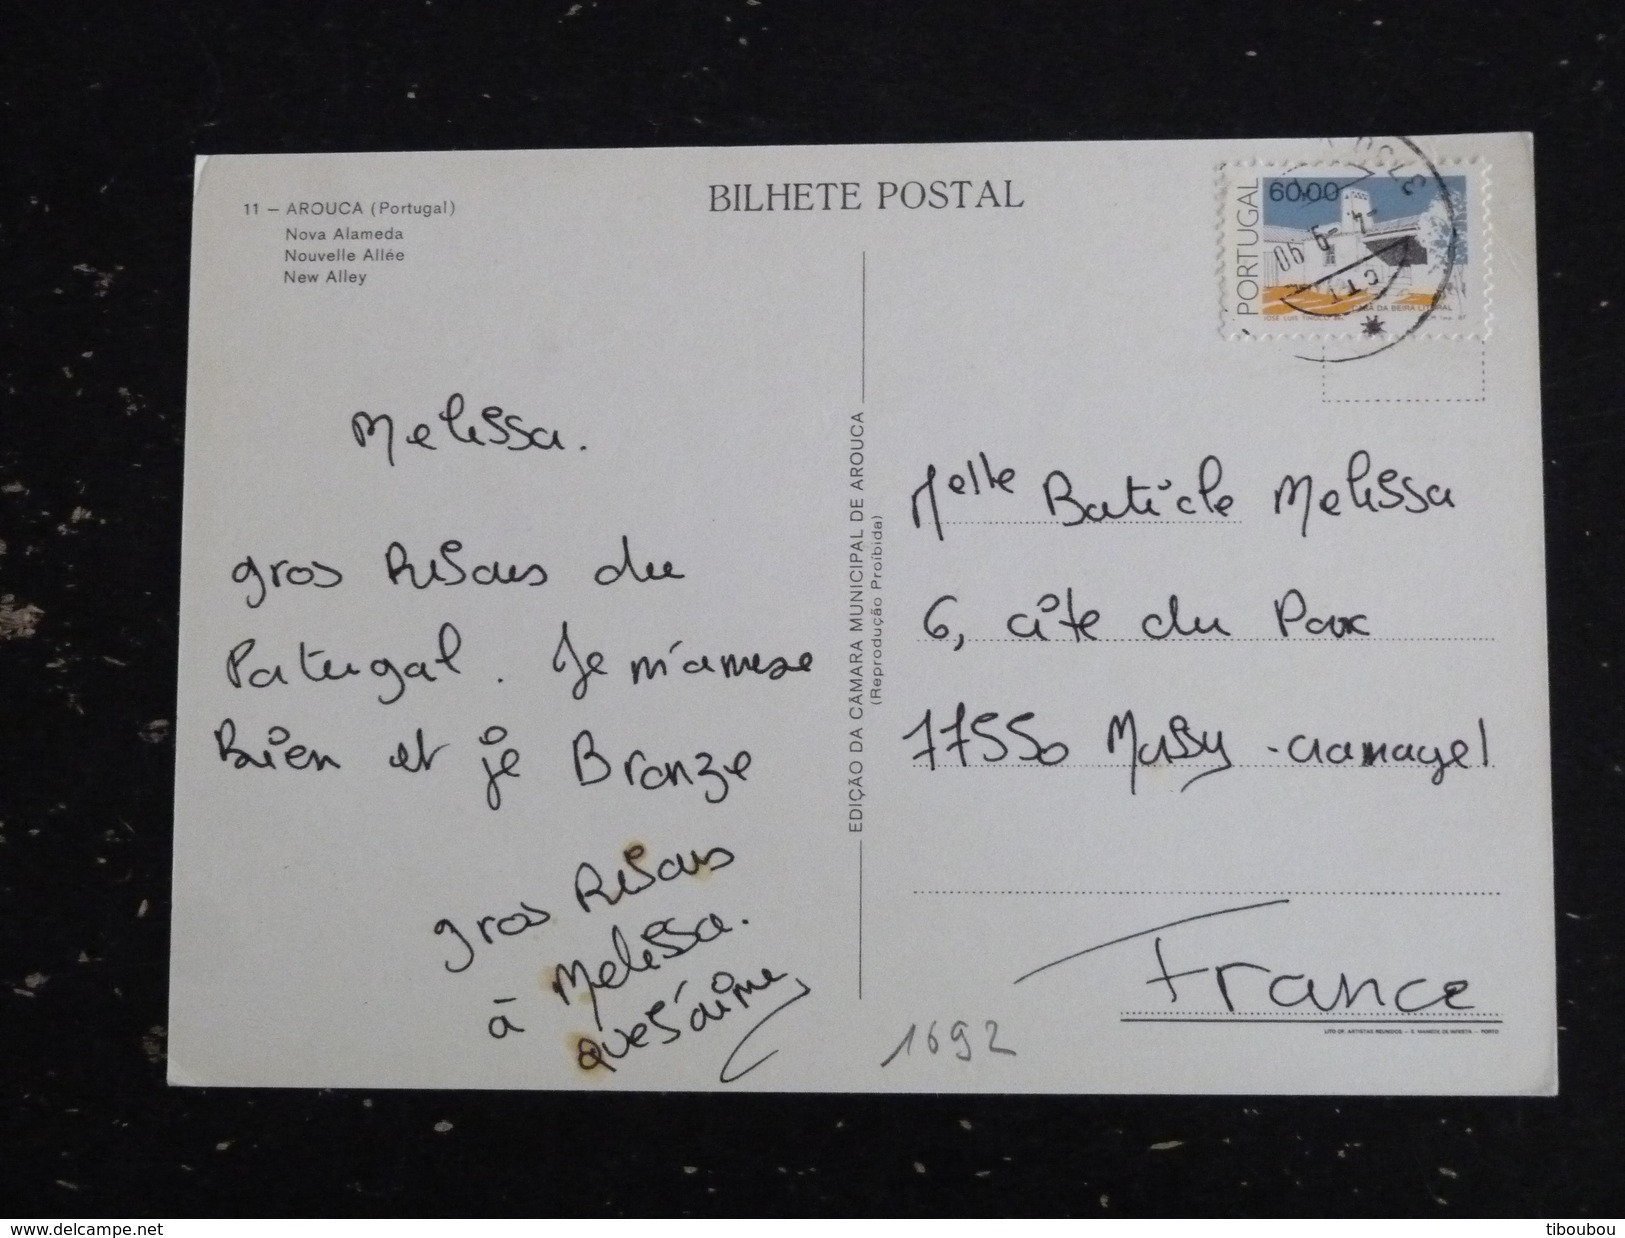 11 — AROUCA (Portugal)
Nova Alameda
Nouvelle Allée
New Alley
BILHETE POSTAL
PORTUGAL
60.00
CASA DA BEIRA LITORAL
-4.-9.90
CTT
Melissa.
gros Bisous du
Portugal. Je m'amuse
Bien et je Bronze
gros Bisous
à Melissa.
EDIÇÃO DA CÂMARA MUNICIPAL DE AROUCA
(Reprodução Proíbida)
Melle Baticle Melissa
6, cité du Parc
77550 Moissy-cramayel
France
1692
delcampe.net
tiboubou